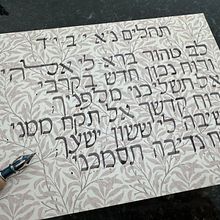 תהלים נ״א י״ב י״ד
לב טהור ברא לי אלהי׳
ורוח נכון חדש בקרבי
אל תשליכני מלפניך
ורוח קדשך אל תקח ממני
השיבה לי ששון ישעך
נדיבה תסמכני: